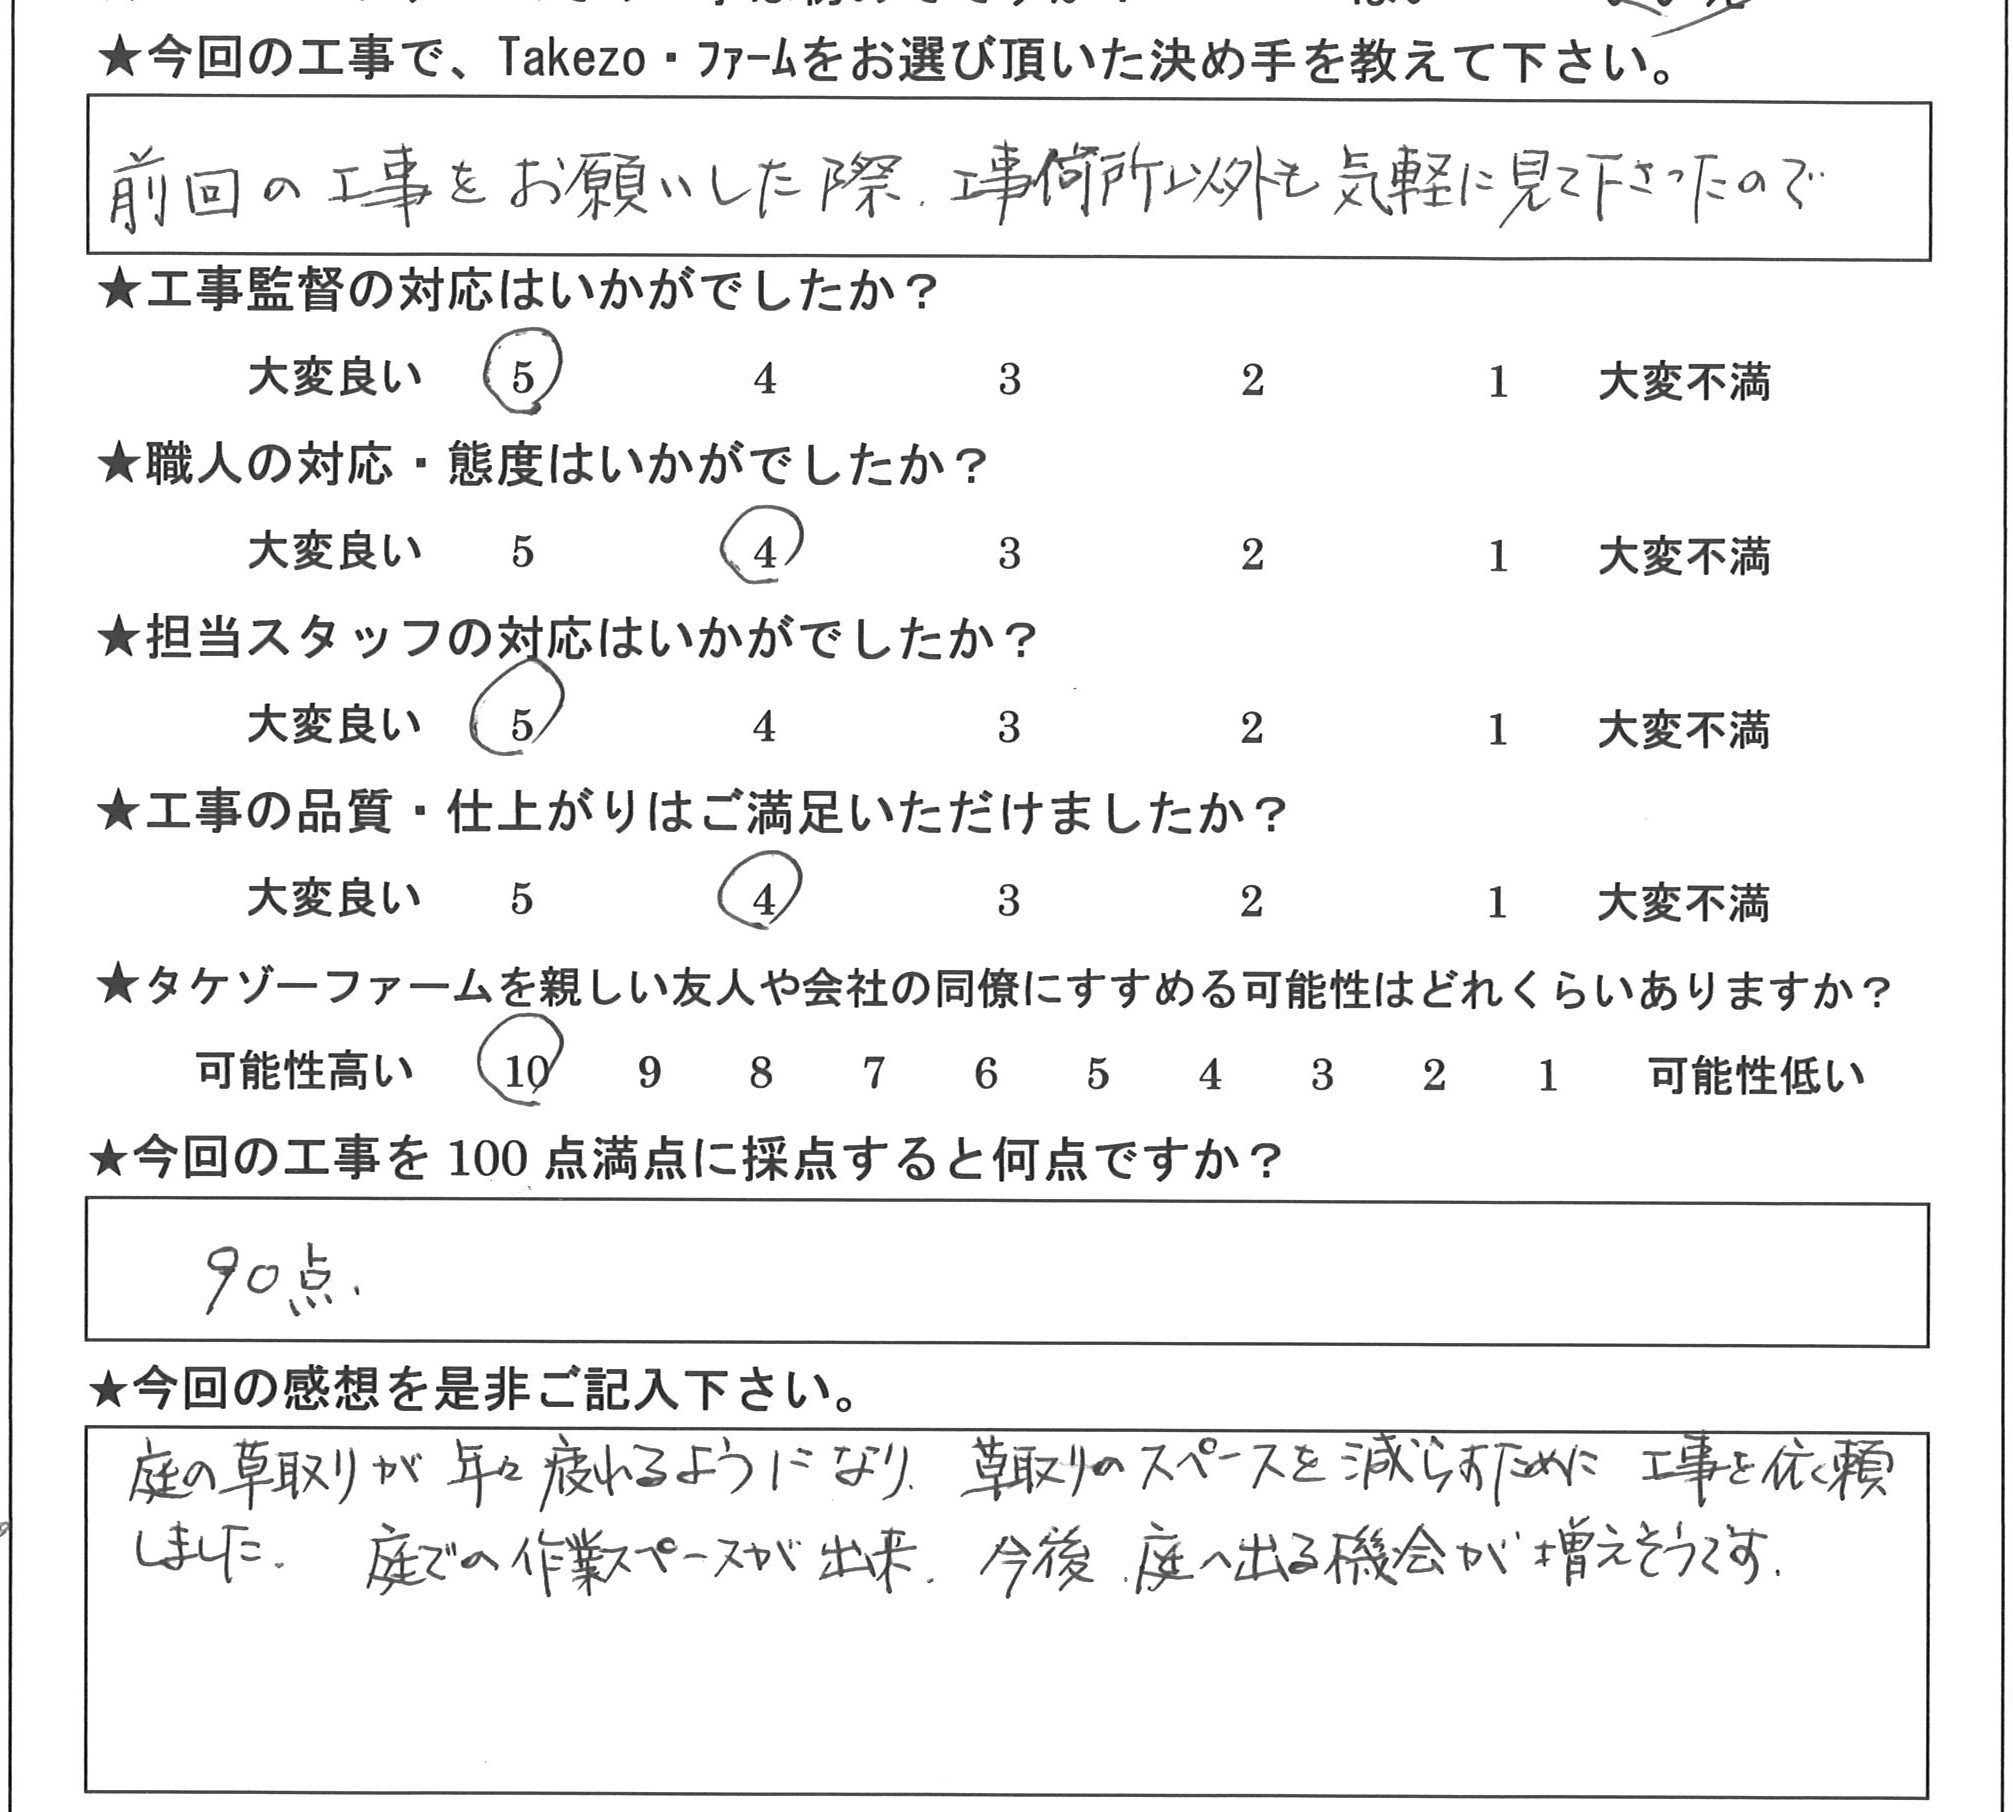 ★今回の工事で、Takezo・ファームをお選び頂いた決め手を教えて下さい。
前回の工事をお願いした際、工事荷所以外も気軽に見て下さったので
★工事監督の対応はいかがでしたか？
大変良い 5 4 3 2 1 大変不満
★職人の対応・態度はいかがでしたか？
大変良い 5 4 3 2 1 大変不満
★担当スタッフの対応はいかがでしたか？
大変良い 5 4 3 2 1 大変不満
★工事の品質・仕上がりはご満足いただけましたか？
大変良い 5 4 3 2 1 大変不満
★タケゾーファームを親しい友人や会社の同僚にすすめる可能性はどれくらいありますか？
可能性高い 10 9 8 7 6 5 4 3 2 1 可能性低い
★今回の工事を100点満点に採点すると何点ですか？
90点.
★今回の感想を是非ご記入下さい。
庭の草取りが年々疲れるようになり、草取りのスペースを減らすために工事を依頼
しました。庭での作業スペースが出来、今後、庭へ出る機会が増えそうです.